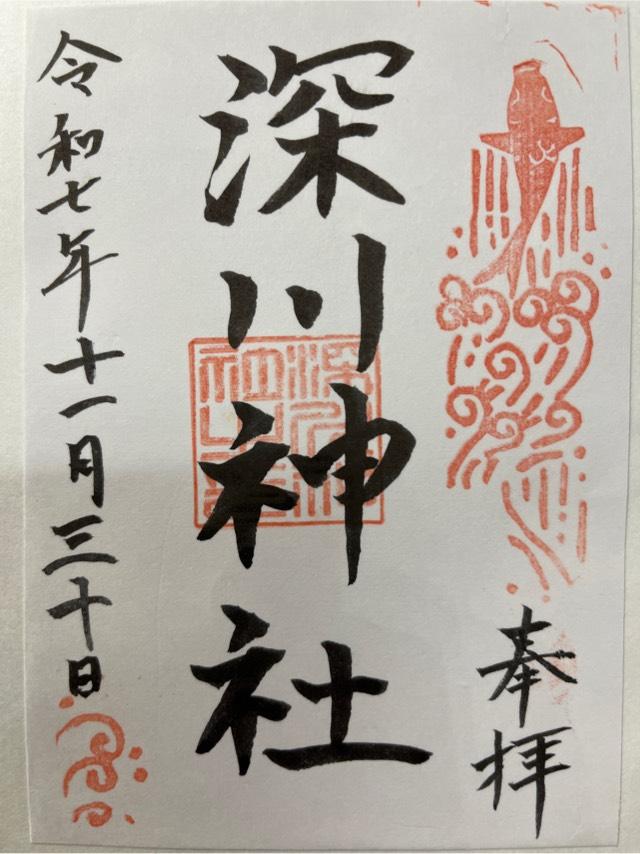 奉拝
深川神社
令和七年十一月三十日